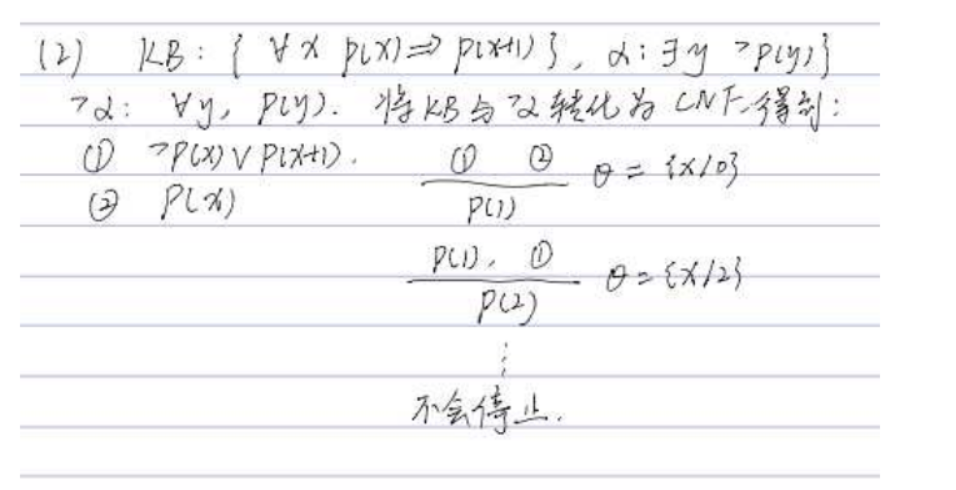 (2) KB: { ∀x p(x)⇒p(x+1) }, α: ∃y ¬p(y)}
¬α: ∀y, p(y). 将KB与¬α转化为CNF得到:
① ¬P(x)∨P(x+1).
② P(x)
① ② θ = {x/0}
P(1)
P(1), ① θ = {x/2}
P(2)
⋮
不会停止.